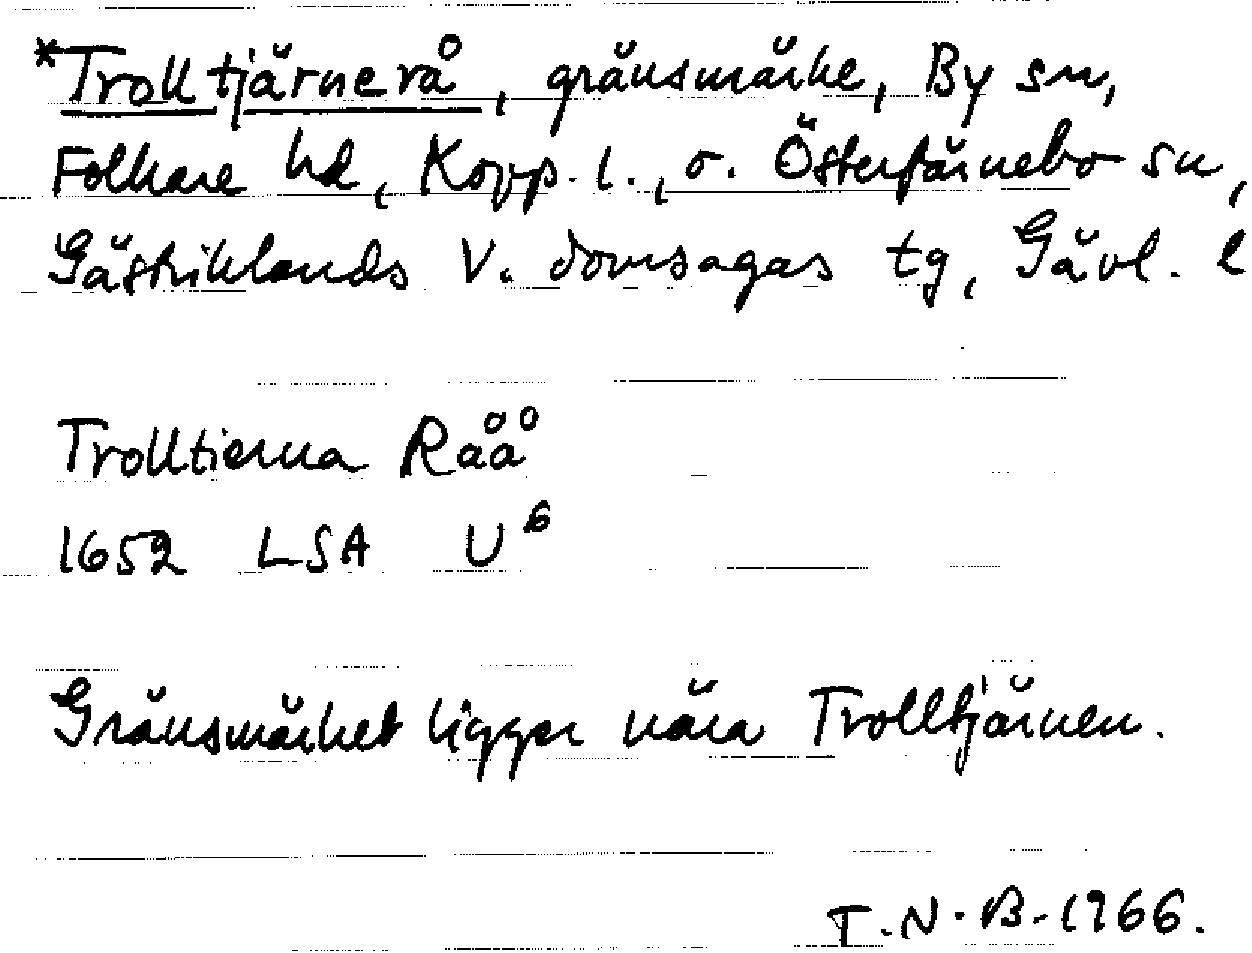 *Trolltjärnerå, gränsmärke, By sn,
Folkare hd, Kopp. l., o. Österfärnebo sn,
Gästriklands V. domsagas tg, Gävl. l
Trolltierna Råå
1652 LSA U⁶
Gränsmärket ligger nära Trolltjärnen.
T.N.B. 1966.